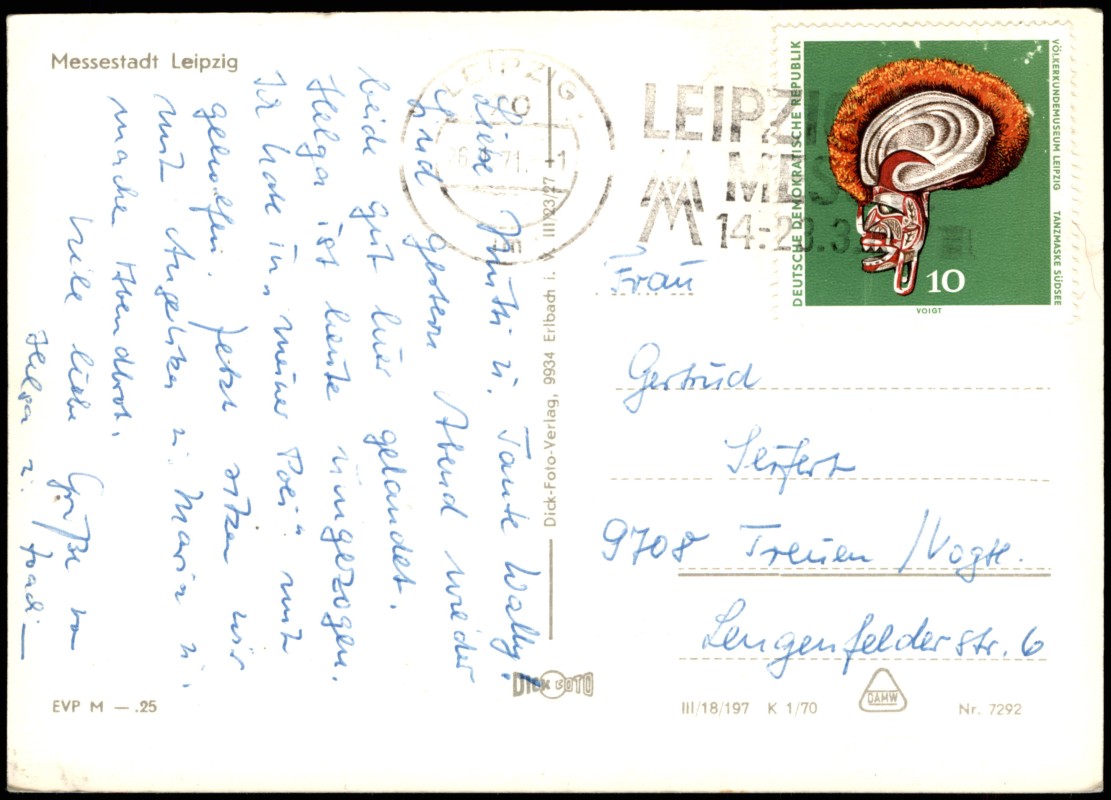 Messestadt Leipzig
Liebe Mutti u. Tante Wally!
Sind gestern Abend wieder
beide gut hier gelandet.
Helga ist heute eingezogen.
Ich habe in meiner mit
geholfen. Jetzt sitzen wir
mit Angelika u. Maria u.
machen Abendbrot.
Viele liebe Grüße von
Helga u.
EVP M — .25
Dick-Foto-Verlag, 9934 Erlbach i. V. III/23/27
DICK FOTO
LEIPZIG
71.-1
LEIPZI
MES
MM
14.-23.3
DEUTSCHE DEMOKRATISCHE REPUBLIK
VÖLKERKUNDEMUSEUM LEIPZIG TANZMASKE SÜDSEE
10
VOIGT
Frau
Gertrud
Seifert
9708 Treuen /Vogtl.
Lengenfelderstr. 6
III/18/197 K 1/70
DAMW
Nr. 7292